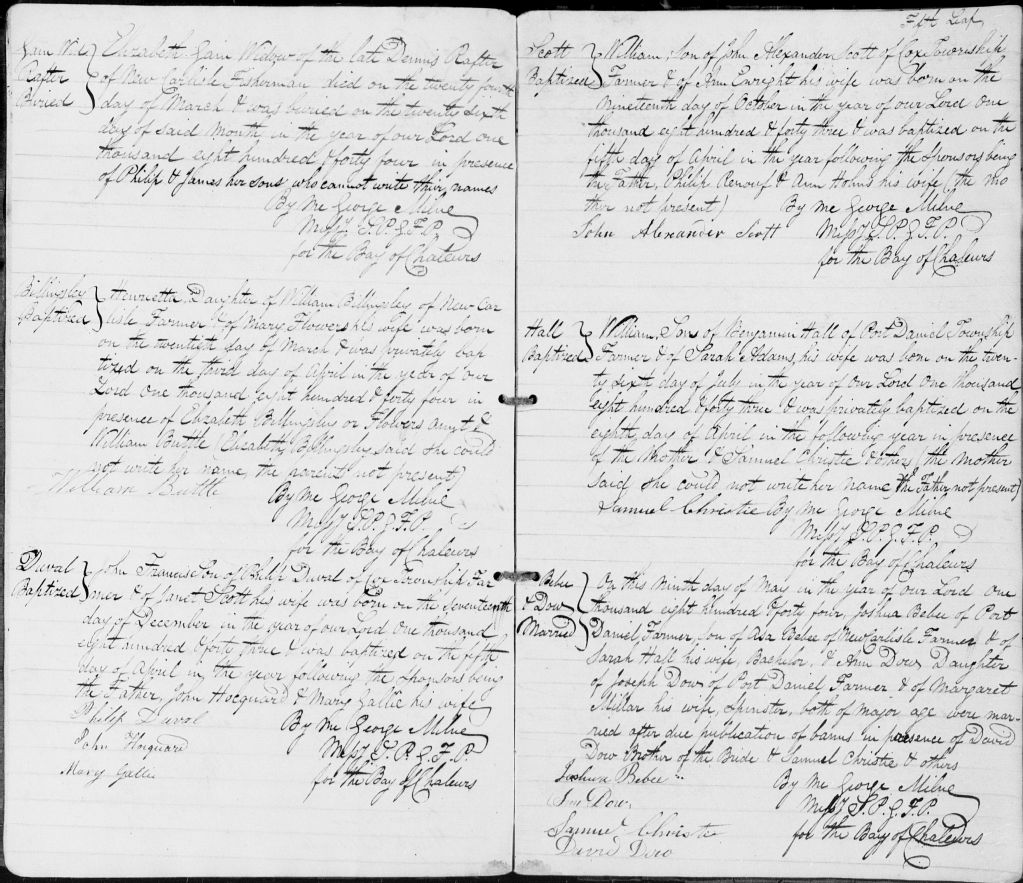 Gain Wid
Rafter
Buried
Elizabeth Gain Widow of the late Dennis Rafter
of New Carlisle Fisherman died on the twenty fourth
day of March & was buried on the twenty sixth
day of said Month in the year of our Lord one
thousand eight hundred & forty four in presence
of Philip & James her sons who cannot write their names
By Me George Milne
Missy S.P.G.F.P.
for the Bay of Chaleurs
Billingsley
Baptized
Henrietta, Daughter of William Billingsley of New Car
lisle Farmer & of Mary Flowers his wife was born
on the twentieth day of March & was privately bap
tized on the third day of April in the year of our
Lord one thousand eight hundred & forty four in
presence of Elizabeth Billingsley or Flowers Aunt &
William Buttle (Elizabeth Billingsley said she could
not write her name, the parents not present)
William Buttle
By Me George Milne
Missy S.P.G.F.P.
for the Bay of Chaleurs
Duval
Baptized
John Francis Son of Philip Duval of Cox Township Far
mer & of Janet Scott his wife was born on the seventeenth
day of December in the year of our Lord one thousand
eight hundred & forty three & was baptized on the fifth
day of April in the year following the Sponsors being
the Father, John Hocquard & Mary Gallie his wife
Philip Duval
John Hoquard
Mary Gallie
By Me George Milne
Missy S.P.G.F.P.
for the Bay of Chaleurs
Fifth Leaf
Scott
Baptized
William, Son of John Alexander Scott of Cox Township
Farmer & of Ann Enright his wife was born on the
Nineteenth day of October in the year of our Lord one
thousand eight hundred & forty three & was baptized on the
fifth day of April in the year following the Sponsors being
the Father, Philip Renouf & Ann Holms his wife (the Mo
ther not present)
By Me George Milne
John Alexander Scott
Missy S.P.G.F.P.
for the Bay of Chaleurs
Hall
Baptized
William, Son of Benjamin Hall of Port Daniel Township
Farmer & of Sarah Adams, his wife was born on the twen-
ty sixth day of July in the year of our Lord one thousand
eight hundred & forty three & was privately baptized on the
eighth day of April in the following year in presence
of the Mother & Samuel Christie & others (the Mother
said she could not write her name, the Father not present)
Samuel Christie By Me George Milne
Missy S.P.G.F.P.
for the Bay of Chaleurs
Bebee
& Dow
Married
On this Ninth day of May in the year of our Lord one
thousand eight hundred & forty four, Joshua Bebee of Port
Daniel, Farmer, Son of Asa Bebee of New Carlisle Farmer & of
Sarah Hall his wife, Bachelor, & Ann Dow Daughter
of Joseph Dow of Port Daniel, Farmer & of Margaret
Millar his wife, Spinster, both of major age were mar-
ried after due publication of banns in presence of David
Dow Brother of the Bride & Samuel Christie & others
Joshua Bebee
By Me George Milne
Ann Dow
Missy S.P.G.F.P.
Samuel Christie
for the Bay of Chaleurs
David Dow